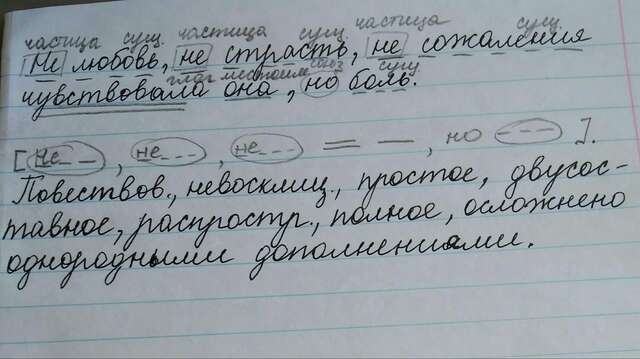 частица сущ. частица сущ. частица сущ.
Не любовь, не страсть, не сожаления
глаг местоим союз сущ
чувствовала она, но боль.
[не, не, не, но].
Повествов., невосклиц., простое, двусос-
тавное, распростр., полное, осложнено
однородными дополнениями.